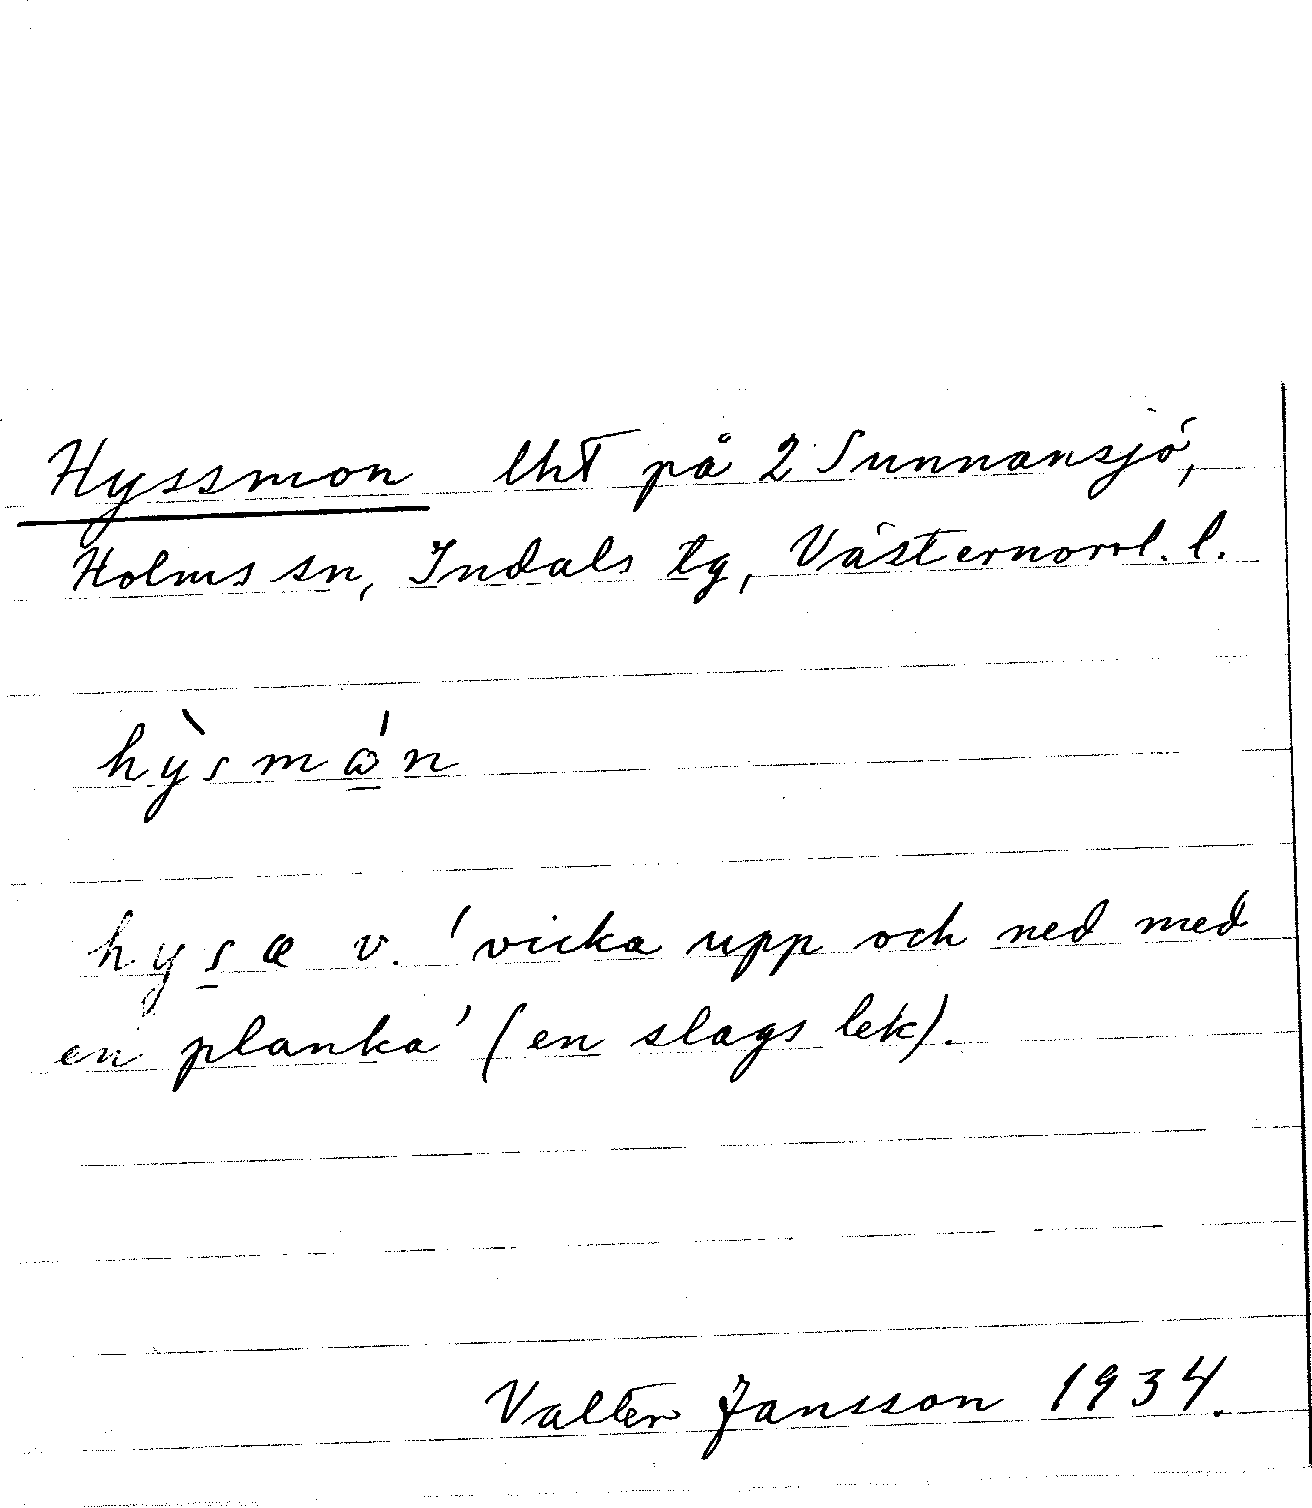 Hyssmon lht på 2 Sunnansjö,
Holms sn, Indals tg, Västernorrl. l.
hỳsmɷ́n
hysæ v. 'vicka upp och ned med
en planka' (en slags lek).
Valter Jansson 1934.